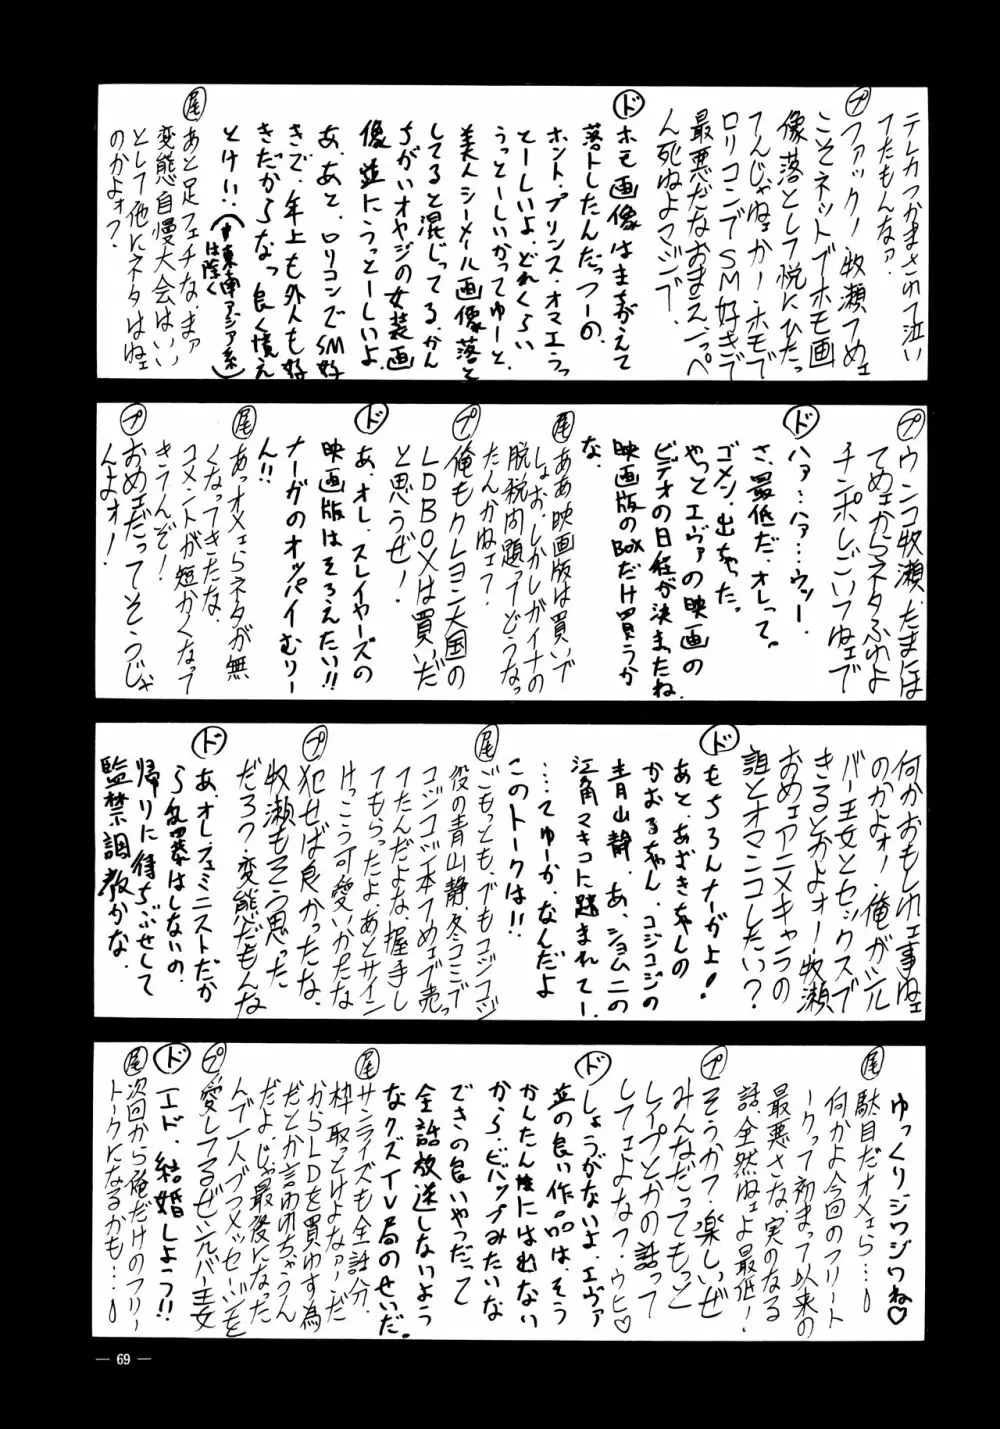 テレカつかまされて泣い
てたもんなァ。
プ ファック!牧瀬てめェ
こそネットでホモ画
像落として悦にひたっ
てんじゃねェかー。ホモで
ロリコンでSM好きで
最悪だなおまえ、いっぺ
ん死ねよマジで。
ド ホモ画像はまちがえて
落トしたんだっつーの。
ホント、プリンス・オマエうっ
とーしいよ。どれくらい
うっとーしいかってゆーと、
美人シーメール画像落と
してると混じってる、かん
ちがいオヤジの女装画
像並にうっとーしいよ。
あ、あと、ロリコンでSM好
きで、年上も外人も好
きだからなっ 良く憶え
とけい!!(東南アジア系
は除く)
尾 あと足フェチな。まァ
変態自慢大会はいい
として他にネタはねェ
のかよォ?
プ ウンコ牧瀬、たまには
てめェからネタふれよ
チンポしごいてねェで
ド ハァ…ハァ…ウッー。
さ、最低だ、オレって。
ゴメン、出ちゃった。
やっとエヴァの映画の
ビデオの日程が決まったね。
映画版のBOXだけ買うか
な。
尾 ああ映画版は買いで
しょお。しかしガイナの
脱税問題ってどうなっ
たんかねェ?
プ 俺もクレヨン大国の
LDBOXは買いだ
と思うぜ!
ド あ、オレ、スレイヤーズの
映画版はそろえたい!!
ナーガのオッパイむりー
ん!!
尾 あっオメェらネタが無
くなってきたな。
コメントが短かくなって
きてんぞ!
プ おめェだってそうじゃ
んよォ!
何かおもしれェ事ねェ
のかよォ!俺がシル
バー王女とセックスで
きるとかよォー。牧瀬
おめェアニメキャラの
誰とオマンコしたい?
ド もちろんナーガよ!
あと、あずきちゃんの
かおるちゃん、コジコジの
青山静、あ、ショムニの
江角マキコに踏まれてー。
…てゆーか、なんだよ
このトークは!!
尾 ごもっとも、でもコジコジ
役の青山静、冬コミで
コジコジ本てめェで売っ
てたんだよな。握手し
てもらったよ。あとサイン
けっこう可愛いかったな
プ 犯せば良かったな、
牧瀬もそう思った
だろ?変態だもんな
ド あ、オレ、フェミニストだか
ら乱暴はしないの。
帰りに待ちぶせして
監禁調教かな。
ゆっくりジワジワね♡
尾 駄目だオメェら…
何かよ今回のフリート
ークって初まって以来の
最悪さな。実のなる
話、全然ねェよ最低!
プ そうかァ?楽しいぜ
みんなだってもっと
レイプとかの話って
してェよなァ?ウヒ♡
ド しょうがないよ、エヴァ
並の良い作品は、そう
かんたん後には出ない
から、ビバップみたいな
できの良いやつだって
全話放送しないよう
なクズTV局のせいだ。
尾 サンライズも全話分、
枠取っとけよなァー。だ
からLDを買わす為
だとか言われちゃうん
だよ。じゃ最後になった
んで一人づつメッセージを
プ 愛してるぜシルバー王女
ド エド、結婚しよう!!
尾 次回から俺だけのフリー
トークになるかも…
— 69 —